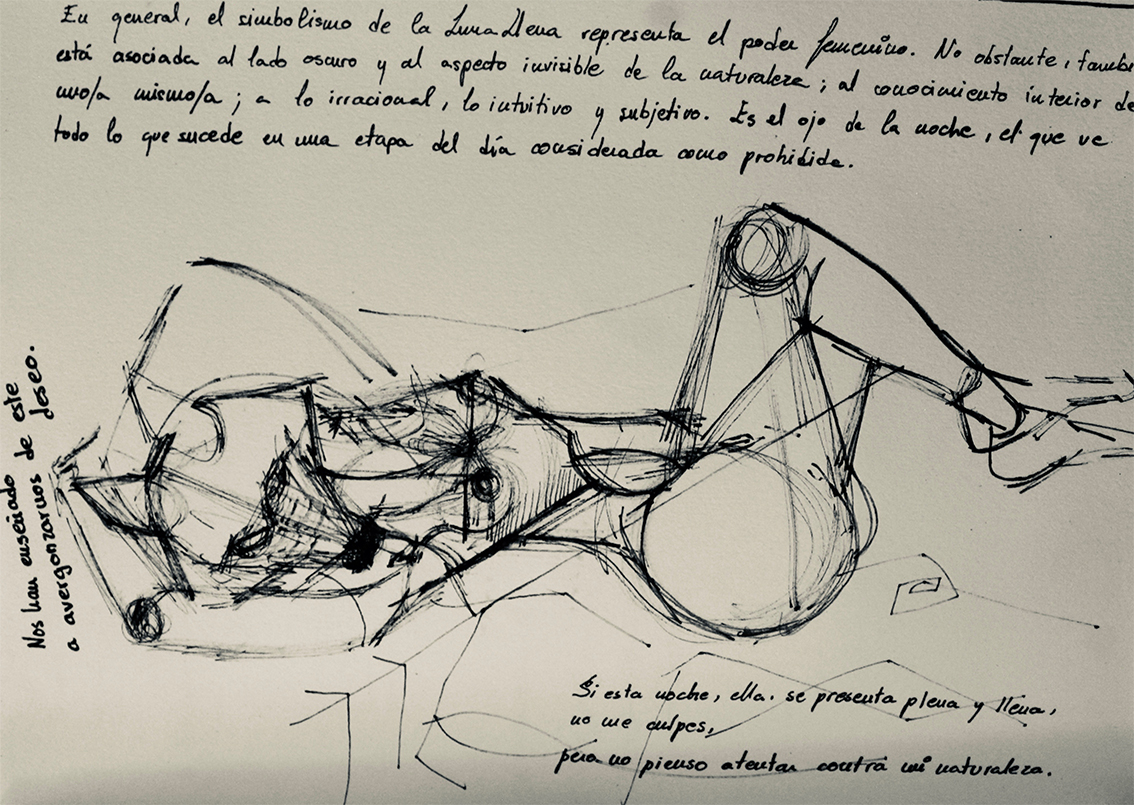 En general, el simbolismo de la Luna Llena representa el poder femenino. No obstante, tambié
está asociada al lado oscuro y al aspecto invisible de la naturaleza; al conocimiento interior de
uno/a mismo/a; a lo irracional, lo intuitivo y subjetivo. Es el ojo de la noche, el que ve
todo lo que sucede en una etapa del día considerada como prohibida.
Nos han enseñado
a avergonzarnos de este
deseo.
Si esta noche, ella. se presenta plena y llena,
no me culpes,
pero no pienso atentar contra mi naturaleza.